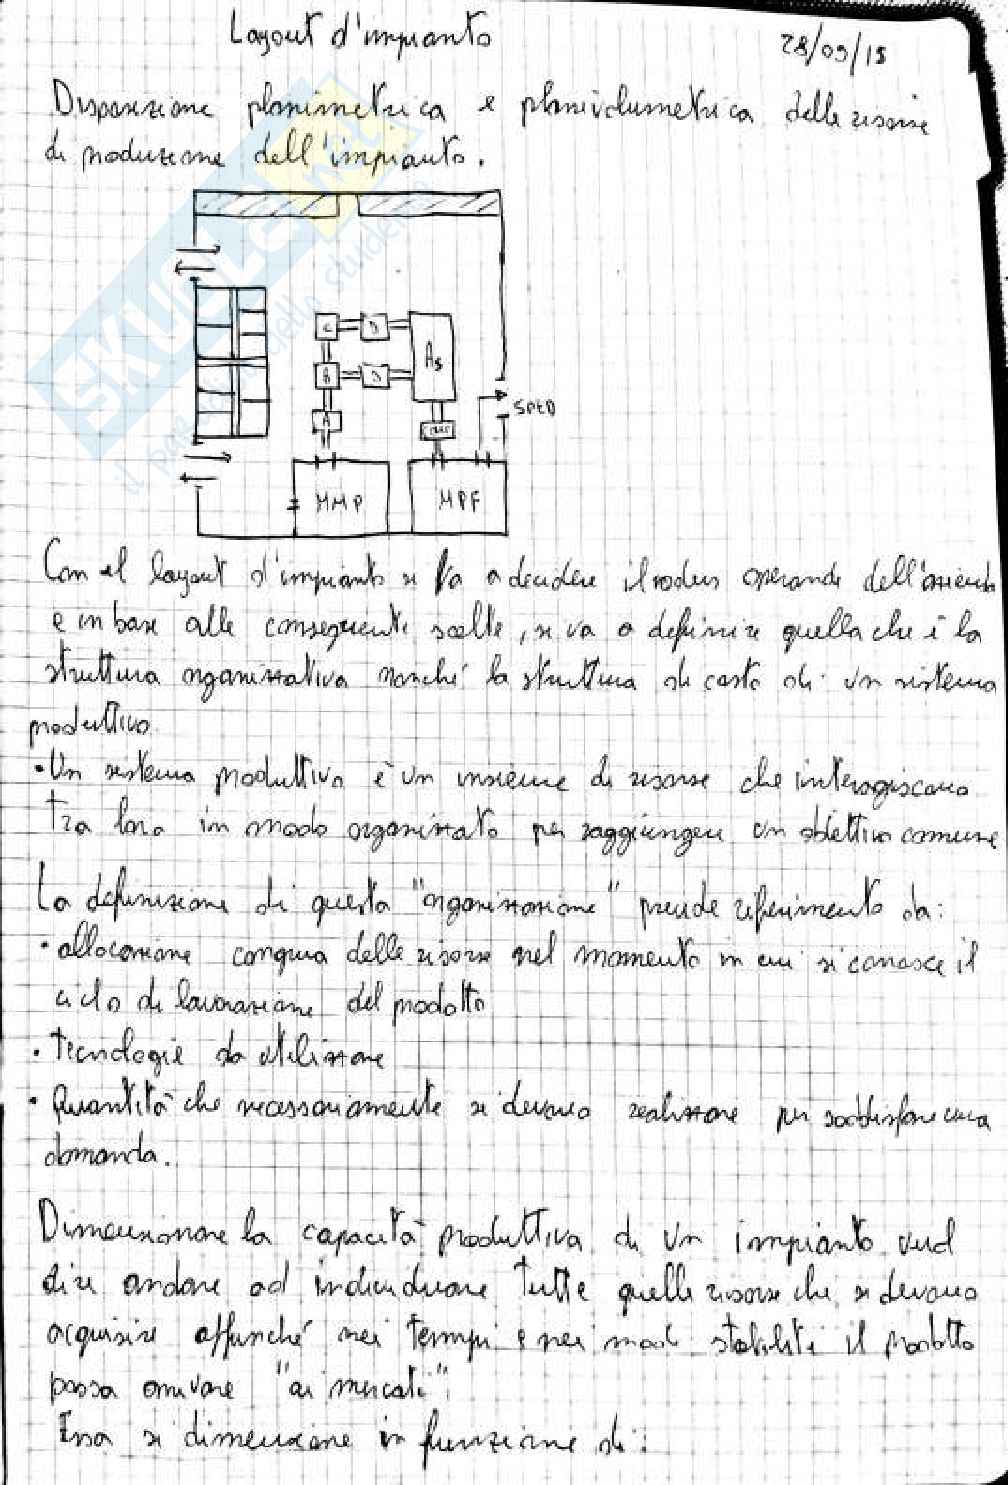 Layout d'impianto
28/09/15
Disposizione planimetrica e planivolumetrica delle risorse
di produzione dell'impianto.
C D
As
B D
A
SPED
MMP MPF
Con il layout d'impianto si va a decidere il modus operandi dell'azienda
e in base alle conseguenti scelte, si va a definire quella che è la
struttura organizzativa nonché la struttura di costo di un sistema
produttivo.
• Un sistema produttivo è un insieme di risorse che interagiscono
tra loro in modo organizzato per raggiungere un obiettivo comune
La definizione di questa "organizzazione" prende riferimento da:
• allocazione congrua delle risorse nel momento in cui si conosce il
ciclo di lavorazione del prodotto
• Tecnologie da utilizzare
• Quantità che necessariamente si devono realizzare per soddisfare una
domanda.
Dimensionare la capacità produttiva di un impianto vuol
dire andare ad individuare tutte quelle risorse che si devono
acquisire affinché nei tempi e nei modi stabiliti il prodotto
possa arrivare "ai mercati".
Essa si dimensiona in funzione di:
SKUOLA.net
il paradiso dello studente